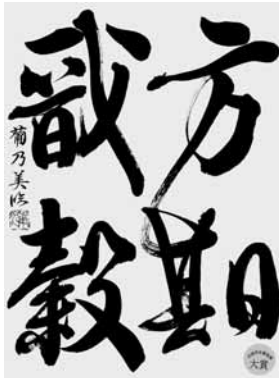 方期
戩穀
菊乃美臨
大賞